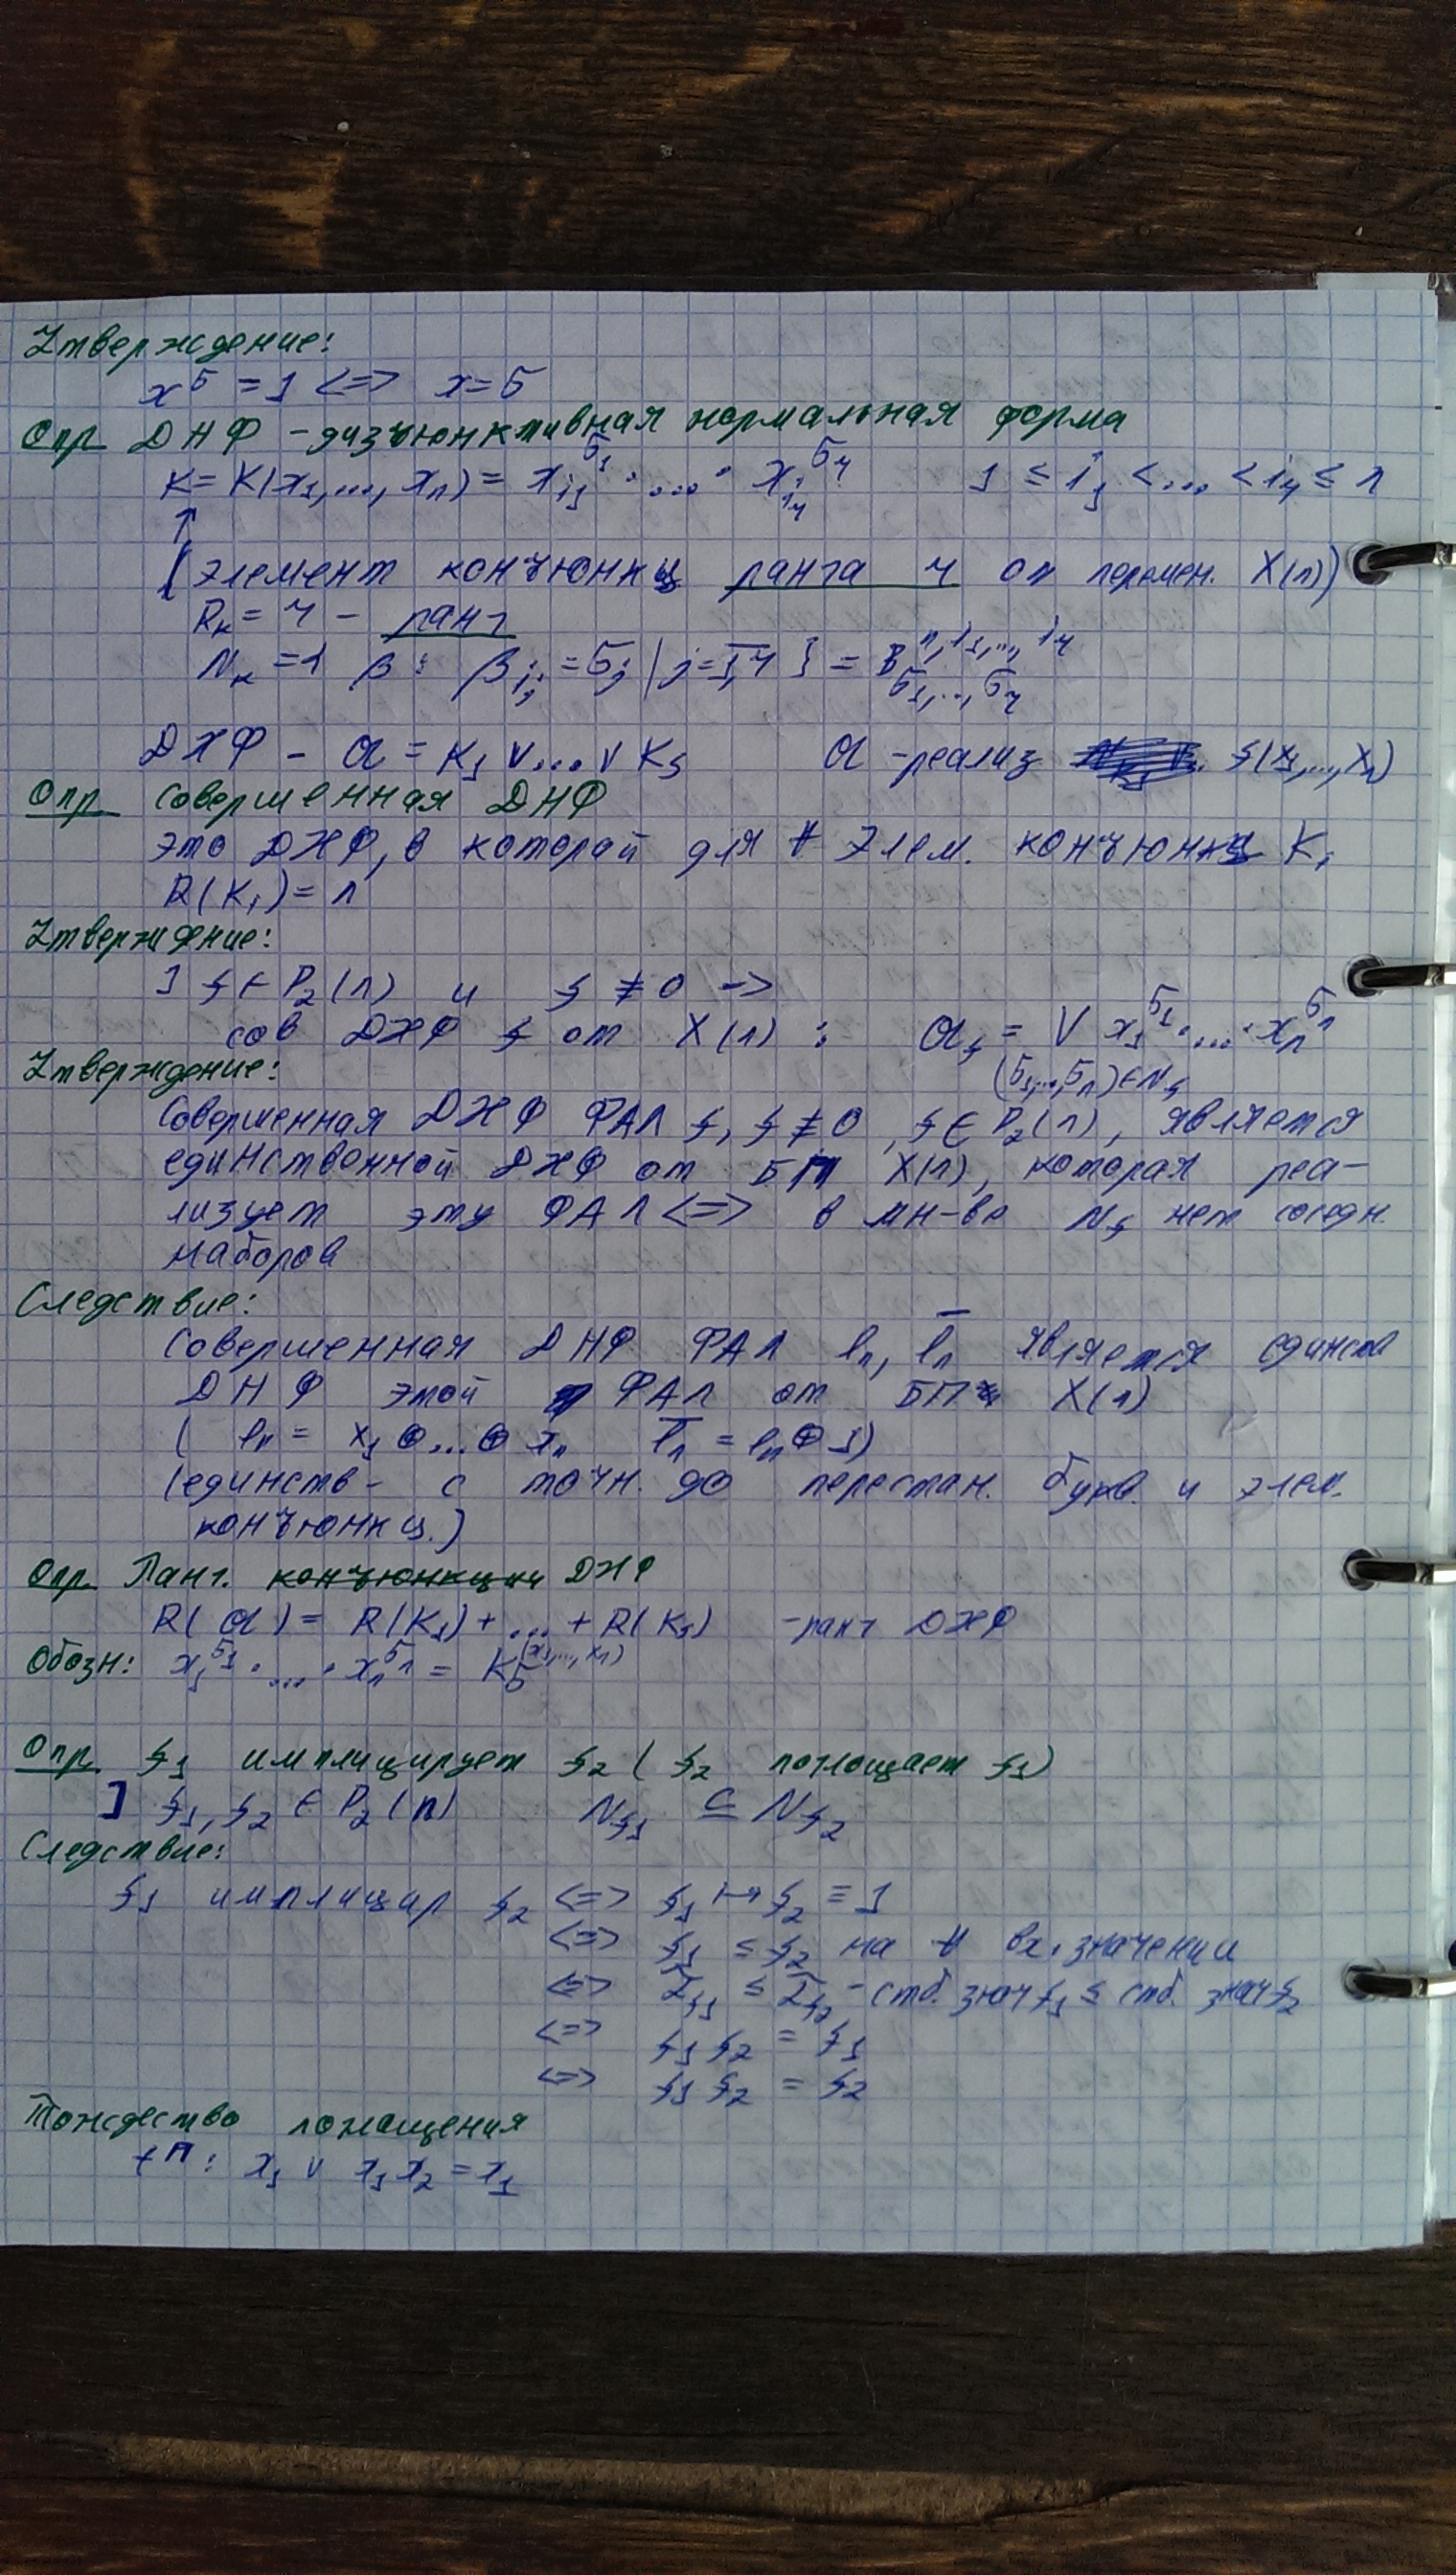 Утверждение:
x^σ = 1 <=> x = σ
Опр ДНФ - дизъюнктивная нормальная форма
K = K(x_1, ..., x_n) = x_{i_1}^{σ_1} · ... · x_{i_r}^{σ_r} 1 ≤ i_1 < ... < i_r ≤ n
↑
(элемент конъюнкц ранга r от перемен. X(n))
R_K = r - ранг
N_K = { β : β_{i_j} = σ_j | j = \overline{1, r} } = B^{n, i_1, ..., i_r}_{σ_1, ..., σ_r}
ДНФ - α = K_1 ∨ ... ∨ K_s α - реализ f(x_1, ..., x_n)
Опр совершенная ДНФ
это ДНФ, в которой для ∀ элем. конъюнкц K_i
R(K_i) = n
Утверждение:
] f ∈ P_2(n) и f ≠ 0 ->
сов ДНФ f от X(n) : α_f = ∨ x_1^{σ_1} · ... · x_n^{σ_n}
(σ_1, ..., σ_n) ∈ N_f
Утверждение:
Совершенная ДНФ ФАЛ f, f ≠ 0, f ∈ P_2(n), является
единственной ДНФ от БП X(n), которая реа-
лизует эту ФАЛ <=> в мн-ве N_f нет соседн.
наборов
Следствие:
Совершенная ДНФ ФАЛ l_n, \overline{l_n} является единств
ДНФ этой ФАЛ от БП X(n)
( l_n = x_1 ⊕ ... ⊕ x_n \overline{l_n} = l_n ⊕ 1)
(единств - с точн. до перестан. букв. и элем.
конъюнкц.)
Опр Ранг. конъюнкции ДНФ
R(α) = R(K_1) + ... + R(K_s) - ранг ДНФ
Обозн: x_1^{σ_1} · ... · x_n^{σ_n} = K_σ(x_1, ..., x_n)
Опр f_1 имплицирует f_2 ( f_2 поглощает f_1)
] f_1, f_2 ∈ P_2(n) N_{f_1} ⊆ N_{f_2}
Следствие:
f_1 имплицир f_2 <=> f_1 ↦ f_2 ≡ 1
<=> f_1 ≤ f_2 на ∀ вх. значении
<=> \tilde{α}_{f_1} ≤ \tilde{α}_{f_2} - стб. знач f_1 ≤ стб. знач f_2
<=> f_1 f_2 = f_1
<=> f_1 f_2 = f_2
Тождество поглощения
t^п : x_1 ∨ x_1 x_2 = x_1